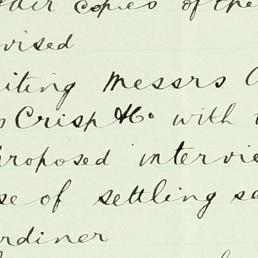 copies of the
vised
iting Messrs
Crisp &Co with
proposed intervie
se of settling
rdiner